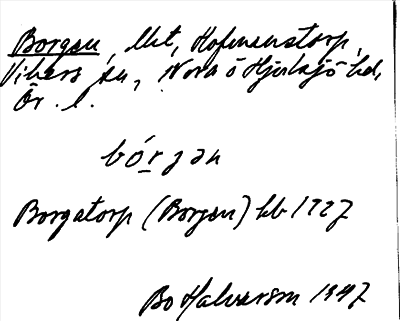 Borgen, lht, Hofmanstorp,
Vikers sn, Nora o Hjulsjö bd,
Ör. l.
bórgan
Borgatorp (Borgen) kb 1727
Bo Halvarson 1947